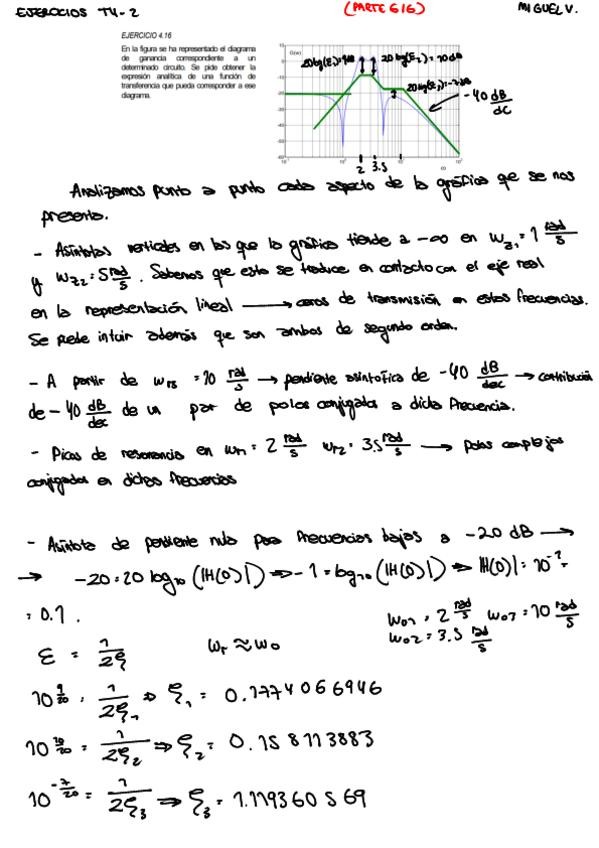 EJERCICIOS T4-2
(PARTE 6/6)
MIGUEL V.
EJERCICIO 4.16
En la figura se ha representado el diagrama
de ganancia correspondiente a un
determinado circuito. Se pide obtener la
expresión analítica de una función de
transferencia que pueda corresponder a ese
diagrama.
20log(ε₂)=10dB
-40 dB/dc
2 3.5
Analizamos punto a punto cada aspecto de la gráfica que se nos
presenta.
- Asíntotas verticales en las que la gráfica tiende a -∞ en Wz1 = 1 rad/s
y Wz2 = 5 rad/s. Sabemos que esto se traduce en contacto con el eje real
en la representación lineal → ceros de transmisión en estas frecuencias.
Se puede intuir además que son ambos de segundo orden.
- A partir de wr3 = 10 rad/s → pendiente asintótica de -40 dB/dec → contribución
de -40 dB/dec de un par de polos conjugados a dicha frecuencia.
- Picos de resonancia en wr1 = 2 rad/s wr2 = 3.5 rad/s → polos complejos
conjugados en dichas frecuencias
- Asíntota de pendiente nula para frecuencias bajas a -20 dB →
→ -20 = 20 log₁₀ (|H(0)|) ⇒ -1 = log₁₀ (|H(0)|) ⇒ |H(0)| = 10⁻¹ =
= 0.1.
W01 = 2 rad/s W03 = 10 rad/s
W02 = 3.5 rad/s
ε = 1/2ξ wr ≈ w0
10^(9/20) = 1/2ξ₁ ⇒ ξ₁ = 0.1774066946
10^(10/20) = 1/2ξ₂ ⇒ ξ₂ = 0.158113883
10^(-7/20) = 1/2ξ₃ ⇒ ξ₃ = 1.119360569